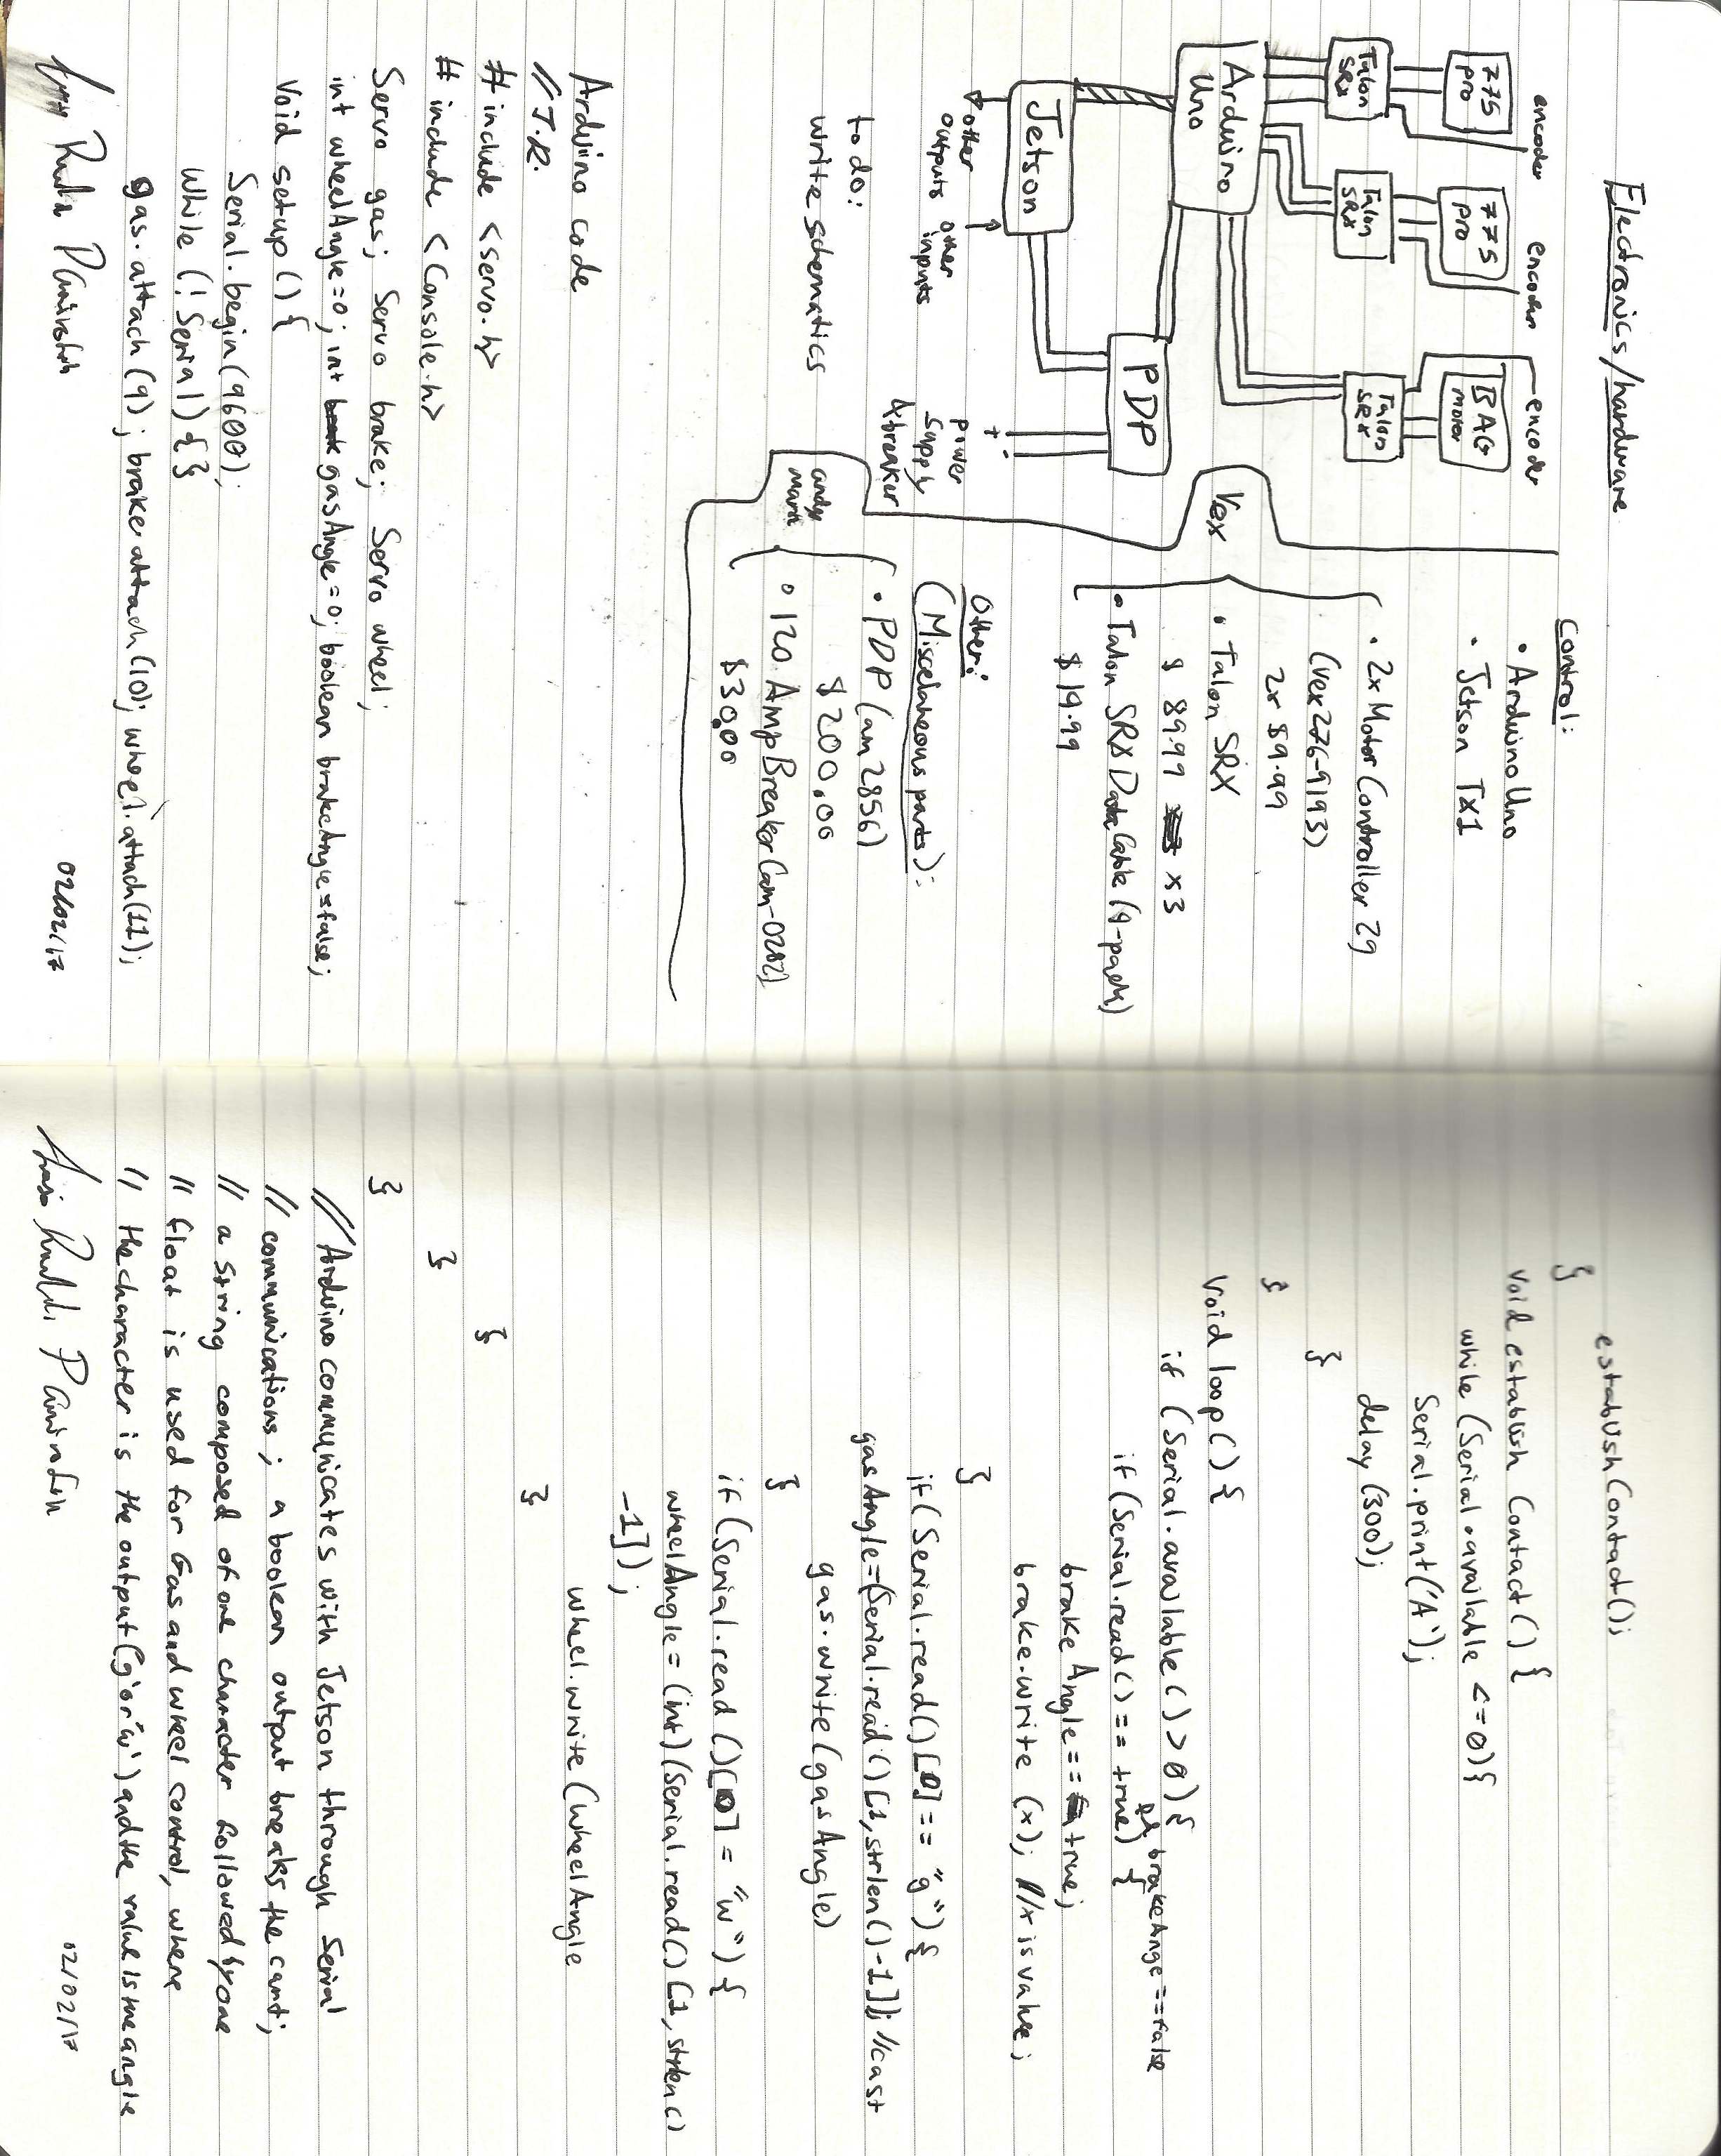 Electronics/hardware
encoder
encoder
encoder
775
pro
775
pro
BAG
motor
Talon
SRX
Talon
SRX
Talon
SRX
Arduino
Uno
PDP
Jetson
other
outputs
other
inputs
+ -
power
supply
& breaker
to do:
write schematics
Control:
• Arduino Uno
• Jetson TX1
• 2x Motor Controller 29
(Vex 276-9193)
2x $9.99
• Talon SRX
$ 89.99 x3
• Talon SRX Data Cable (4-pack)
$19.99
Vex
Other:
(Miscelaneous parts):
• PDP (am 2856)
$200.00
• 120 Amp Breaker (am-0282)
$30.00
andy
mark
Arduino code
// J.R.
# include <servo.h>
# include <Console.h>
Servo gas; Servo brake; Servo wheel;
int wheelAngle=0; int gasAngle=0; boolean brakeAngle=false;
Void setup() {
Serial.begin(9600);
while (!Serial) {}
gas.attach(9); brake.attach(10); wheel.attach(11);
02/02/17
establishContact();
}
void establish Contact() {
while (Serial.available <=0){
Serial.print('A');
delay(300);
}
}
Void loop() {
if (Serial.available()>0){
if (Serial.read() == true) { brakeAnge==false
brake Angle == true;
brake.write (x); //x is value;
}
if (Serial.read()[0]== "g") {
gasAngle=(Serial.read()[1,strlen()-1]); //cast
gas.write(gasAngle)
}
if (Serial.read()[0] = "w") {
wheelAngle = (int)(Serial.read()[1, strlen()
-1]);
wheel.write(wheelAngle
}
}
}
}
// Arduino communicates with Jetson through Serial
// communications; a boolean output breaks the cart;
// a string composed of one character followed by one
// float is used for Gas and wheel control, where
// the character is the output ('g' or 'w') and the value is the angle
02/02/17